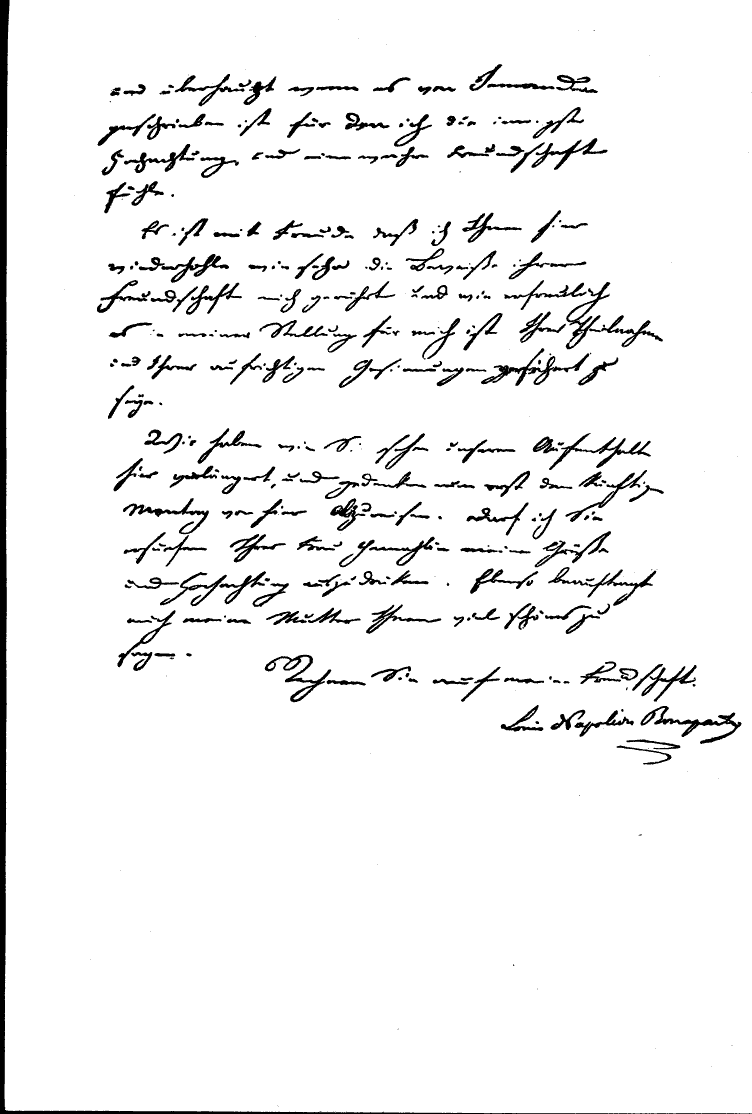 und überhaupt wenn es von Jemanden
geschrieben ist für den ich die innigste
Hochachtung, und eine wahre Freundschaft
fühle.
Es ist mit Freude daß ich Ihnen hier
wiederhohle wie sehr die Beweiße ihrer
Freundschaft mich gerührt und wie erfreulich
es in meiner Stellung für mich ist Ihrer Theilnahme
und Ihrer aufrichtigen Gesinnungen zu
seyn.
Wir haben wie Sie sehen unseren Aufenthalt
hier verlängert, und gedenken nun erst den künftigen
Montag von hier abzureisen. Darf ich Sie
ersuchen Ihrer Frau Gemahlin meine Grüße
und Hochachtung auszudrüken. Ebenso beauftragt
mich meine Mutter Ihnen viel schönes zu
sagen.
Nehmen Sie auf meine Freundschaft.
Louis Napoléon Bonaparte